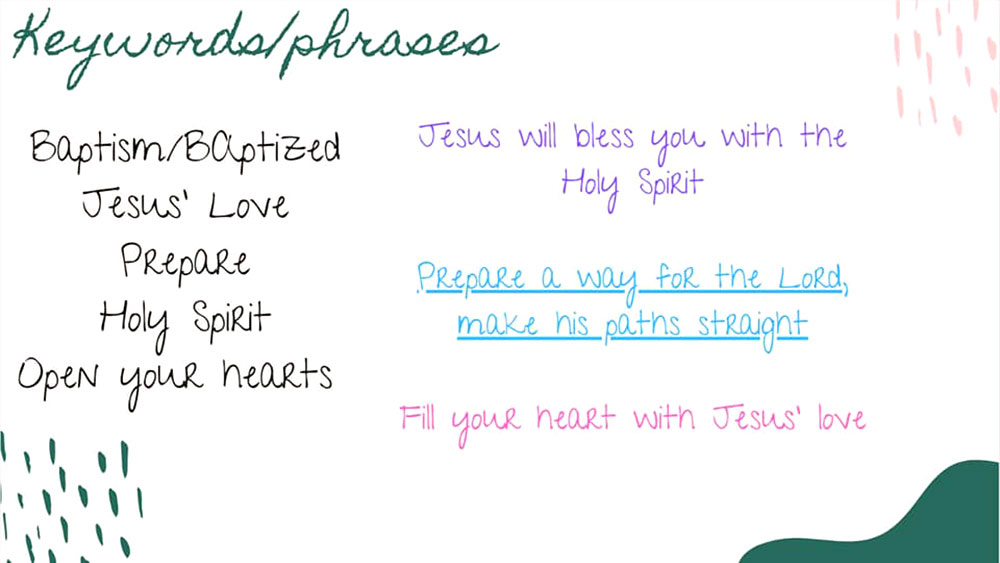 Keywords/phrases
Baptism/Baptized
Jesus' Love
Prepare
Holy Spirit
Open your hearts
Jesus will bless you with the
Holy Spirit
Prepare a way for the Lord,
make his paths straight
Fill your heart with Jesus' love